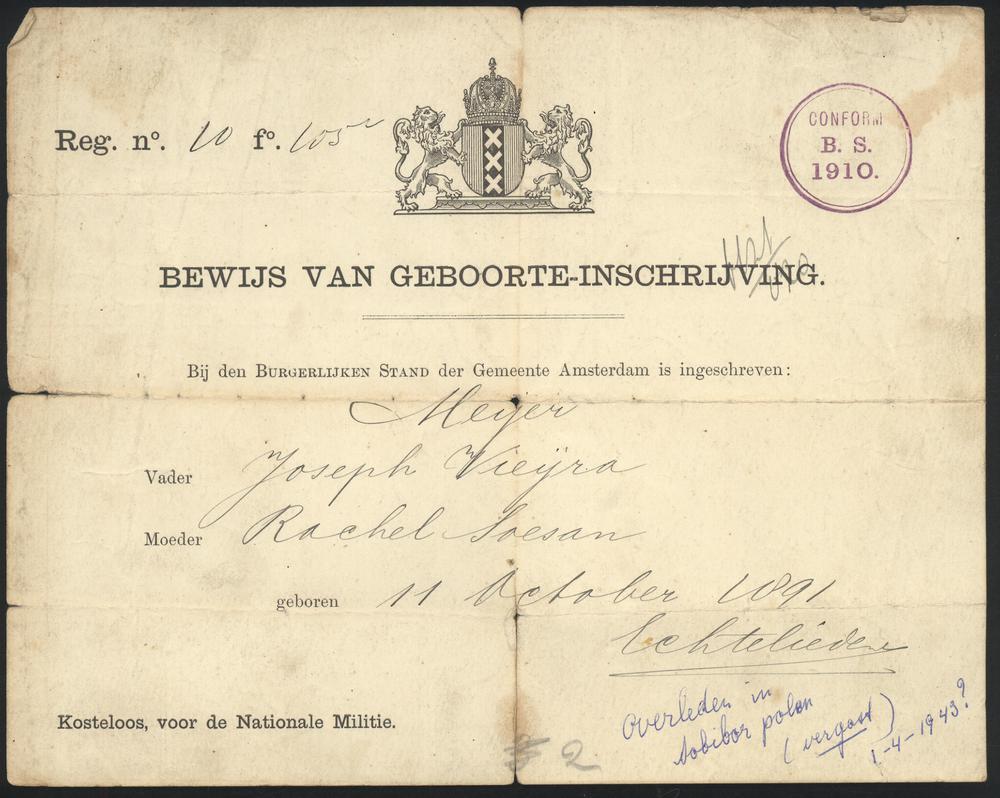 Reg. nº. 10 fº. 105
CONFORM
B. S.
1910.
BEWIJS VAN GEBOORTE-INSCHRIJVING.
Bij den BURGERLIJKEN STAND der Gemeente Amsterdam is ingeschreven:
Meyer
Vader Joseph Vieÿra
Moeder Rachel Soesan
geboren 11 October 1891
Echtelieden
Overleden in
Sobibor polen
(vergast)
1-4-1943?
Kosteloos, voor de Nationale Militie.
2